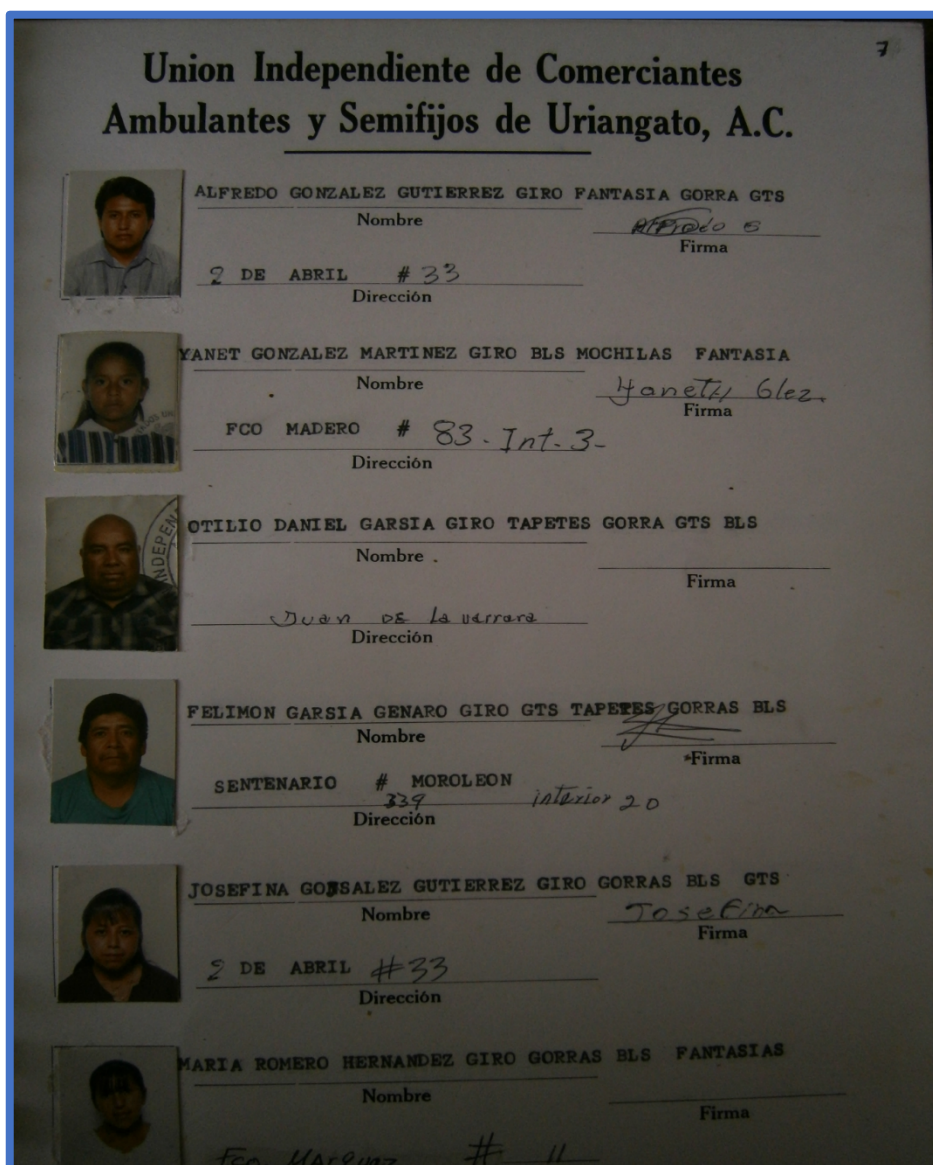 7
Union Independiente de Comerciantes
Ambulantes y Semifijos de Uriangato, A.C.
ALFREDO GONZALEZ GUTIERREZ GIRO FANTASIA GORRA GTS
Nombre
Alfredo G
Firma
2 DE ABRIL # 33
Dirección
YANET GONZALEZ MARTINEZ GIRO BLS MOCHILAS FANTASIA
Nombre
Yaneth Glez.
Firma
FCO MADERO # 83 - Int- 3-
Dirección
INDEPEN
OTILIO DANIEL GARSIA GIRO TAPETES GORRA GTS BLS
Nombre
Firma
Juan DE La
Dirección
FELIMON GARSIA GENARO GIRO GTS TAPETES GORRAS BLS
Nombre
Firma
SENTENARIO # MOROLEON
339 interior 20
Dirección
JOSEFINA GONSALEZ GUTIERREZ GIRO GORRAS BLS GTS
Nombre
Josefina
Firma
2 DE ABRIL #33
Dirección
MARIA ROMERO HERNANDEZ GIRO GORRAS BLS FANTASIAS
Nombre
Firma
Fco # 11